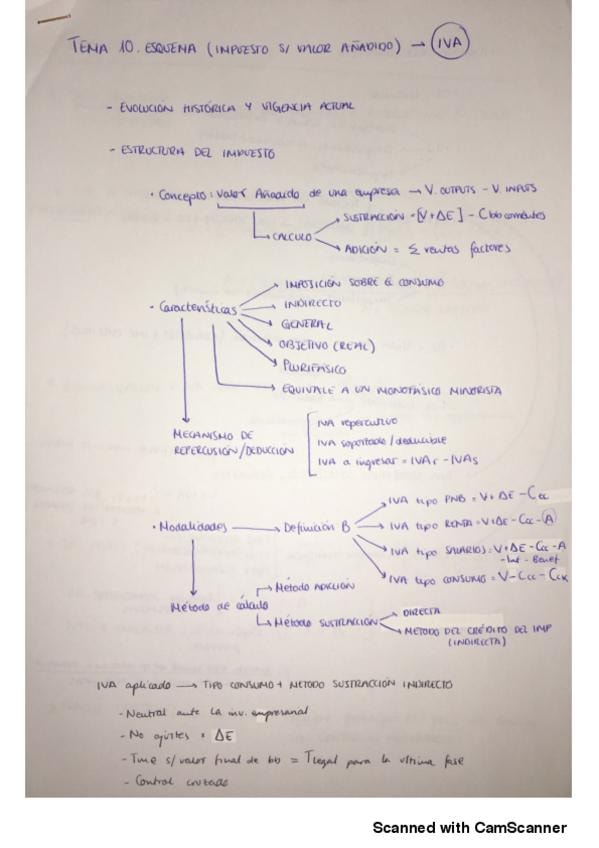 TEMA 10. ESQUEMA (IMPUESTO S/ VALOR AÑADIDO) → IVA
- EVOLUCIÓN HISTÓRICA Y VIGENCIA ACTUAL
- ESTRUCTURA DEL IMPUESTO
· Concepto: Valor Añadido de una empresa → V. OUTPUTS - V. INPUTS
CALCULO
SUSTRACCIÓN = [V + ΔE] - C bb corrientes
ADICIÓN = Σ rentas factores
· Características
IMPOSICIÓN SOBRE EL CONSUMO
INDIRECTO
GENERAL
OBJETIVO (REAL)
PLURIFÁSICO
EQUIVALE A UN MONOFÁSICO MINORISTA
MECANISMO DE REPERCUSIÓN/DEDUCCIÓN
IVA repercutivo
IVA soportado / deducible
IVA a ingresar = IVAr - IVAs
· Modalidades → Definición B
IVA tipo PNB = V + ΔE - Ccc
IVA tipo RENTA = V + ΔE - Ccc - A
IVA tipo SALARIOS = V + ΔE - Ccc - A
- Int - Benef
IVA tipo CONSUMO = V - Ccc - CcK
Método de cálculo
Método ADICIÓN
Método SUSTRACCIÓN
DIRECTA
METODO DEL CRÉDITO DEL IMP
(INDIRECTA)
IVA aplicado → TIPO CONSUMO + METODO SUSTRACCIÓN INDIRECTO
- Neutral ante la inv. empresarial
- No ajustes × ΔE
- Tme s/ valor final de bb = Tlegal para la última fase
- Control cruzado
Scanned with CamScanner